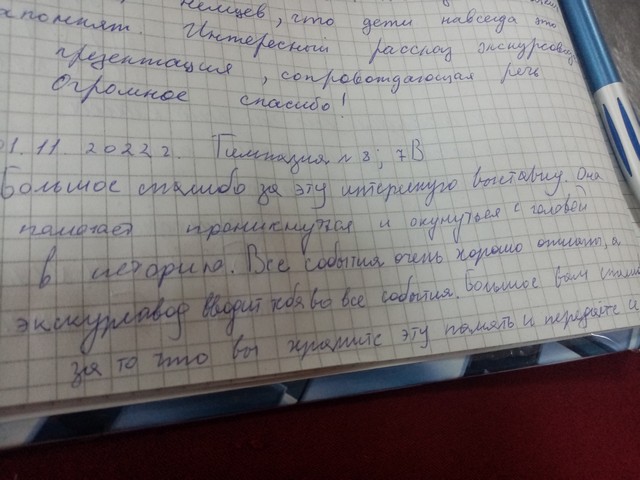 немцев, что дети навсегда это
запомнят. Интересный рассказ экскурсовода
презентация, сопровождающая речь
Огромное спасибо!
01.11.2022г. Гимназия №8; 7В
Большое спасибо за эту интересную выставку. Она
помогает проникнуться и окунуться с головой
в историю. Все события очень хорошо описаны, а
экскурсавод вводит тебя во все события. Большое вам спасибо
за то что вы храните эту память и передаёте и